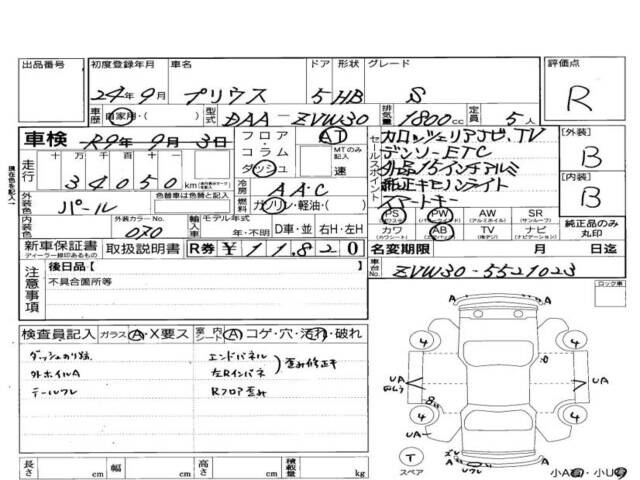 出品番号 初度登録年月 車名 ドア 形状 グレード 評価点
24年9月 プリウス 5 HB S R
車歴 自家用・( ) 型式 DAA-ZVW30 排気量 1800cc 定員 5人
車検 R9年9月3日 フロア・コラム・ダッシュ AT MTのみ記入 速
現在色を記入
走行 十万千百十 34050 km
セールスポイント
カロッツェリアナビ.TV
デンソーETC
外品15インチアルミ
純正キセノンライト
スマートキー
[外装] B
[内装] B
外装色 パール 色替車は色替と記入
冷房 AAC
燃料 ガソリン・軽油・( )
内装色 外装カラーNo. 070
輸入車 モデル年式 年・不明 D車・並 右H・左H
PS (パワステ) PW (パワーウインド) AW (アルミホイル) SR (サンルーフ)
カワ (カワシート) AB TV ナビ (ナビゲーション)
純正品のみ丸印
新車保証書 ディーラー捺印あるもの 取扱説明書 R券 ¥11,820
名変期限 月 日迄
注意事項 後日品[ ]
不具合箇所等
車台No. ZVW30-5521023
ロック車
検査員記入 ガラス A・X要ス 室内シート A コゲ・穴・汚れ・破れ
ダッシュのり跡 エンドパネル
外ホイルA 左Rインパネ 歪み修正キ
テールワレ Rフロア歪み
A
A
4
4
UA
UA
4
4
UA
A
A
T
スペア
長さ cm 幅 cm 高さ cm 積載量 kg